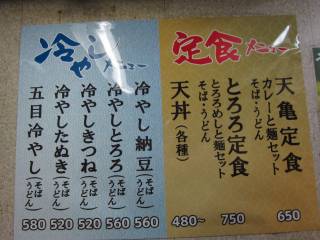 定食メニュー
天亀定食
カレーと麺セット
そば・うどん
650
とろろ定食
とろろめしと麺セット
そば・うどん
750
天丼(各種)
480~
冷やしメニュー
冷やし納豆(そば うどん)
560
冷やしとろろ(そば うどん)
560
冷やしきつね(そば うどん)
520
冷やしたぬき(そば うどん)
520
五目冷やし(そば うどん)
580